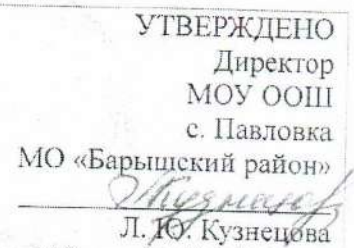 УТВЕРЖДЕНО
Директор
МОУ ООШ
с. Павловка
МО «Барышский район»
Л. Ю. Кузнецова